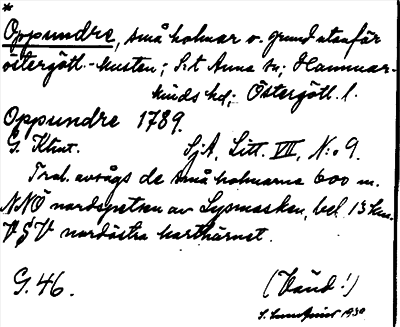 *
Oppundre, små holmar o. grund utanför
östergötl.-kusten; S:t Anna sn; Hammar-
kinds hd; Östergötl. l.
Oppundre 1789.
G. Klint. SjA, Litt. VII, N:o 9.
Trol. avsågs de små holmarna 600 m.
NNÖ nordspetsen av Lysmasken, bel. 13 km.
VSV nordöstra karthörnet.
G. 46. (Vänd!)
S. Lundqvist 1930